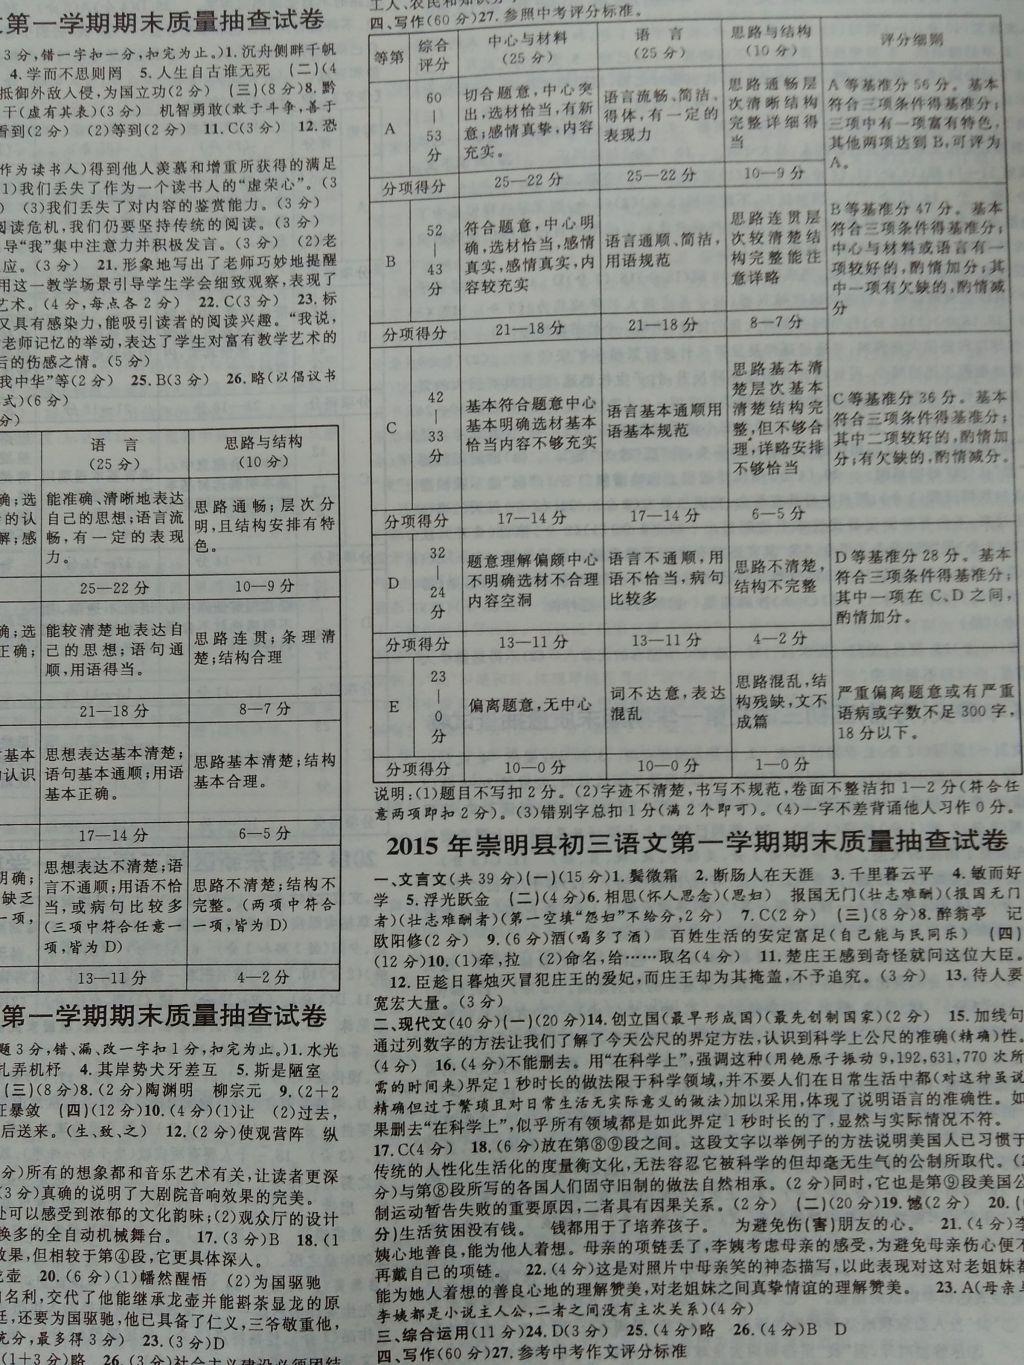 文第一学期期末质量抽查试卷
3分,错一字扣一分,扣完为止。)1.沉舟侧畔千帆
4.学而不思则罔 5.人生自古谁无死 (二)(4
抵御外敌入侵,为国立功(2分) (三)(8分)8.黔
干(虚有其表)(3分) 机智勇敢(敢于斗争,善于
看到(2分) (2)等到(2分) 11.C(3分) 12.恐
作为读书人)得到他人羡慕和增重所获得的满足
1)我们丢失了作为一个读书人的“虚荣心”。(3
) (3)我们丢失了对内容的鉴赏能力。(3分)
阅读危机,我们仍要坚持传统的阅读。(3分)
导“我”集中注意力并积极发言。(3分) (2)老
应。(3分) 21.形象地写出了老师巧妙地提醒
用这一教学场景引导学生学会细致观察,表现了
艺术。(4分,每点各2分) 22.C(3分) 23.标
又具有感染力,能吸引读者的阅读兴趣。“我说,
老师记忆的举动,表达了学生对富有教学艺术的
后的伤感之情。(5分)
我中华”等(2分) 25.B(3分) 26.略(以倡议书
式)(6分)
分)
语 言 思路与结构
(25分) (10分)
确;选 能准确、清晰地表达 思路通畅;层次分
的认 自己的思想;语言流 明,且结构安排有特
解;感 畅,有一定的表现 色。
力。
25—22分 10—9分
确;选 能较清楚地表达自 思路连贯;条理清
正确; 己的思想;语句通 楚;结构合理
顺,用语得当。
21—18分 8—7分
基本 思想表达基本清楚; 思路基本清楚;结构
认识 语句基本通顺;用语 基本合理。
基本正确。
17—14分 6—5分
明确; 思想表达不清楚;语 思路不清楚;结构不
缺乏 言不通顺;用语不恰 完整。(两项中符合
一项, 当,或病句比较多 一项,皆为D)
(三项中符合任意一
项,皆为D)
13—11分 4—2分
第一学期期末质量抽查试卷
题3分,错、漏、改一字扣1分,扣完为止。)1.水光
扎弄机杼 4.其岸势犬牙差互 5.斯是陋室
(三)(8分)8.(2分)陶渊明 柳宗元 9.(2+2
征暴敛 (四)(12分)10.(4分)(1)让 (2)过去,
后送来。(生、致、之) 12.(2分)使观营阵 纵
分)所有的想象都和音乐艺术有关,让读者更深
(3分)真确的说明了大剧院音响效果的完美。
处可以感受到浓郁的文化韵味;(2)观众厅的设计
换多的全自动机械舞台。 17.(3分)B 18.(1
效果,但相较于第④段,它更具体深人。
龙壶 20.(6分)(1)幡然醒悟 (2)为国驱驰
名利,交代了他能继承龙壶并能斟茶显龙的原
廷,还要为国驱驰,他已具备了仁义,三爷敬重他,
充分,最多得3分) 23.(3分)D
(1+3分)略 26.(3分)社会主义建设必须团结
工人、农民和知识分子
四、写作(60分)27.参照中考评分标准。
等第 综合评分 中心与材料(25分) 语 言(25分) 思路与结构(10分) 评分细则
A 60—53分
切合题意,中心突出,选材恰当,有新意;感情真挚,内容充实。
语言流畅、简洁、得体,有一定的表现力
思路通畅层次清晰结构完整详细得当
A等基准分56分。基本符合三项条件得基准分;三项中有一项富有特色,其他两项达到B,可评为A。
分项得分 25—22分 25—22分 10—9分
B 52—43分
符合题意,中心明确,选材恰当,感情真实,感情真实,内容较充实
语言通顺、简洁,用语规范
思路连贯层次较清楚结构完整能注意详略
B等基准分47分。基本符合三项条件得基准分;中心与材料或语言有一项较好的,酌情加分;其中一项有欠缺的,酌情减分
分项得分 21—18分 21—18分 8—7分
C 42—33分
基本符合题意中心基本明确选材基本恰当内容不够充实
语言基本通顺用语基本规范
思路基本清楚层次基本清楚结构完整,但不够合理,详略安排不够恰当
C等基准分36分。基本符合三项条件得基准分;其中二项较好的,酌情加分;有欠缺的,酌情减分。
分项得分 17—14分 17—14分 6—5分
D 32—24分
题意理解偏颇中心不明确选材不合理内容空洞
语言不通顺,用语不恰当,病句比较多
思路不清楚,结构不完整
D等基准分28分。基本符合三项条件得基准分;其中一项在C、D之间,酌情加分。
分项得分 13—11分 13—11分 4—2分
E 23—0分
偏离题意,无中心
词不达意,表达混乱
思路混乱,结构残缺,文不成篇
严重偏离题意或有严重语病或字数不足300字,18分以下。
分项得分 10—0分 10—0分 1—0分
说明:(1)题目不写扣2分。(2)字迹不清楚,书写不规范,卷面不整洁扣1—2分(符合任
意两项即扣2分)。(3)错别字总扣1分(满2个即可)。(4)一字不差背诵他人习作0分。
2015年崇明县初三语文第一学期期末质量抽查试卷
一、文言文(共39分)(一)(15分)1.鬓微霜 2.断肠人在天涯 3.千里暮云平 4.敏而好
学 5.浮光跃金 (二)(4分)6.相思(怀人思念)(思妇) 报国无门(壮志难酬)(报国无门
者)(壮志难酬者)(第一空填“怨妇”不给分,2分) 7.C(2分) (三)(8分)8.醉翁亭 记
欧阳修(2分) 9.(6分)酒(喝多了酒) 百姓生活的安定富足(自己能与民同乐) (四)
(12分)10.(1)牵,拉 (2)命名,给……取名(4分) 11.楚庄王感到奇怪就问这位大臣。
12.臣趁日暮烛灭冒犯庄王的爱妃,而庄王却为其掩盖,不予追究。(3分) 13.待人要
宽宏大量。(3分)
二、现代文(40分)(一)(20分)14.创立国(最早形成国)(最先创制国家)(2分) 15.加线句
通过列数字的方法让我们了解了今天公尺的界定方法,认识到科学上公尺的准确(精确)性。
(4分) 16.(4分)不能删去。用“在科学上”,强调这种(用铯原子振动9,192,631,770次所
需的时间来)界定1秒时长的做法限于科学领域,并不要人们在日常生活中都(对这种虽说
精确但过于繁琐且对日常生活无实际意义的做法)加以采用,体现了说明语言的准确性。如
果删去“在科学上”,似乎所有领域都是如此界定1秒时长的了,显然与实际情况不符。
17.C(4分) 18.(6分)放在第⑧⑨段之间。这段文字以举例子的方法说明美国人已习惯于
传统的人性化生活化的度量衡文化,无法容忍它被科学的但却毫无生气的公制所取代。(2
分)与第⑧段所写的各国人们固守旧制的做法自然相承。(2分)同时,它也是第⑨段美国公
制运动暂告失败的重要原因,二者具有因果关系。(2分) (二)(20分)19.憾(2分) 20.(6
分)生活贫困没有钱。 钱都用于了培养孩子。 为避免伤(害)朋友的心。 21.(4分)李
姨心地善良,能为他人着想。母亲的项链丢了,李姨考虑母亲的感受,为避免母亲伤心便不
再戴自己的项链。 22.(4分)这是对照片中母亲笑的神态描写,以此表现对这对老姐妹都
能为她人着想的善良心地的理解赞美,对老姐妹之间真挚情谊的理解赞美。 23.A(母亲与
李姨都是小说主人公,二者之间没有主次关系)(4分)
三、综合运用(11分)24.D(3分) 25.(4分)略 26.(4分)B D
四、写作(60分)27.参考中考作文评分标准